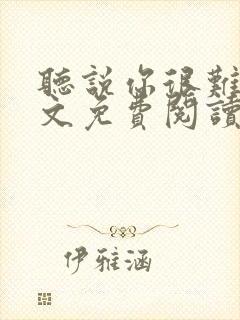 聽說你很難
文免費閱讀
伊雅涵